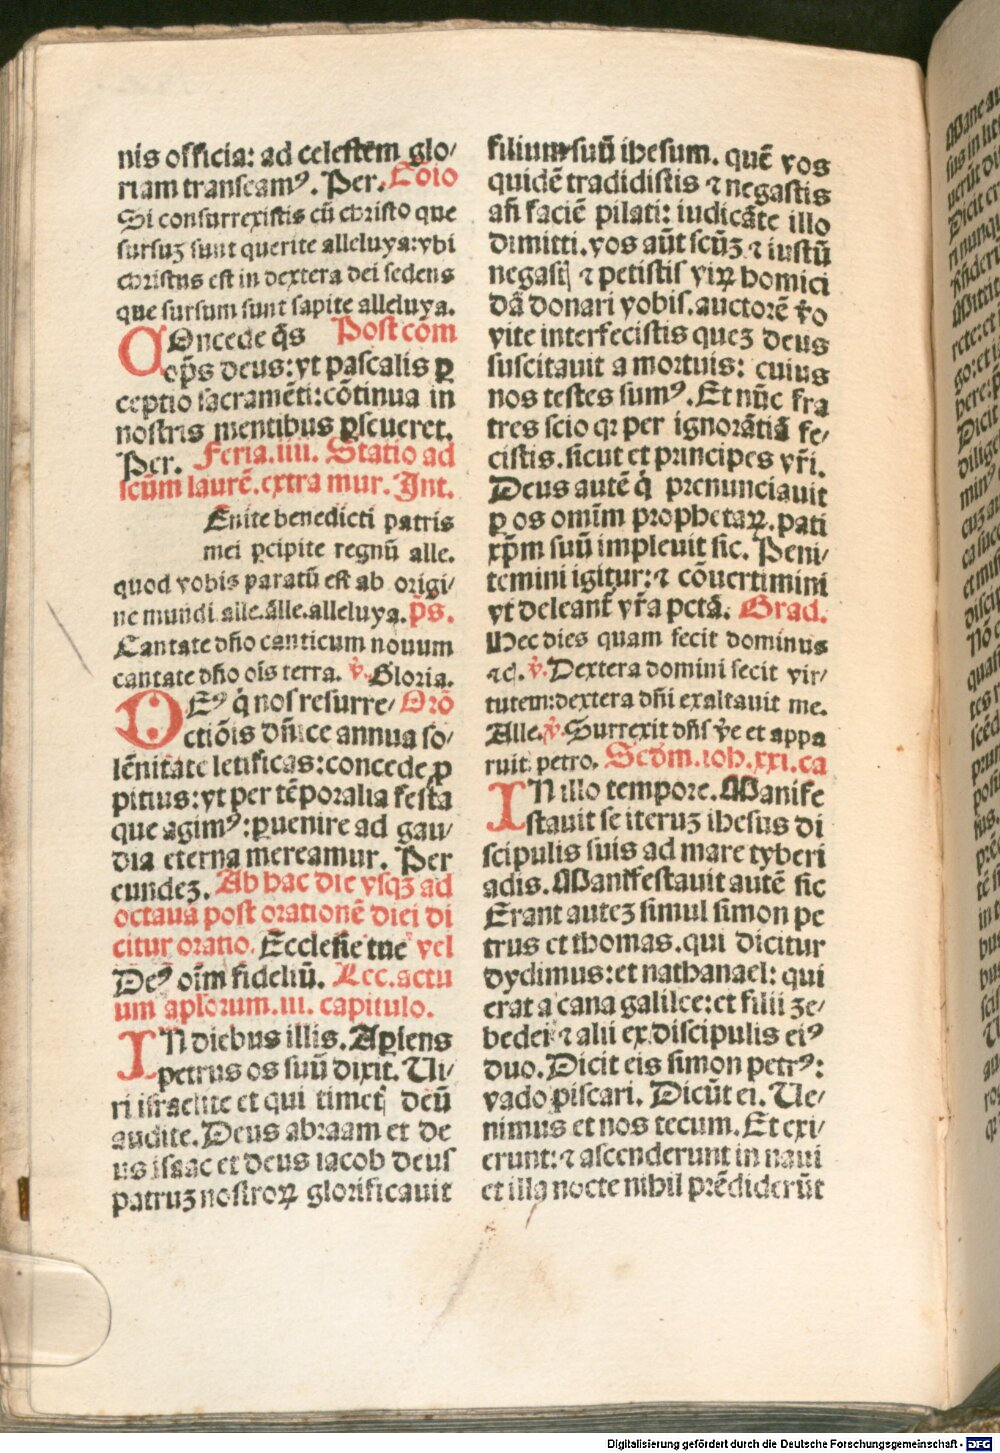 nis officia: ad celestem glo/
riam transeamꝰ. Per. Cōio
Si consurrexistis cū christo que
sursuꝫ sunt querite alleluya: vbi
christus est in dextera dei sedens
que sursum sunt sapite alleluya.
COncede q̄s Post com
op̄s deus: vt pascalis ꝑ
ceptio sacramēti: cōtinua in
nostris mentibus ꝑseueret.
Per. Feria.iiii. Statio ad
scūm laurē. extra mur. Int.
Enite benedicti patris
mei ꝑcipite regnū alle.
quod vobis paratū est ab origi/
ne mundi alle. alle. alleluya. p̄s.
Cantate dn̄o canticum nouum
cantate dn̄o oīs terra. v̄. Gloria.
DEꝰ q̄ nos resurre/ Orō
ctiōis dn̄ice annua so/
lēnitate letificas: concede ꝓ
pitius: vt per tēporalia festa
que agimꝰ: ꝑuenire ad gau/
dia eterna mereamur. Per
eundeꝫ. Ab hac die vsqꝫ ad
octaua post orationē diei di
citur oratio. Ecclesie tue vel
Deꝰ oīm fideliū. Lec. actu
um apl̄orum. iii. capitulo.
IN diebus illis. Apiens
petrus os suū dixit. Ui/
ri israelite et qui timetꝭ deū
audite. Deus abraam et de
us isaac et deus iacob deus
patruꝫ nostroꝝ glorificauit
filium suū ihesum. quē vos
quidē tradidistis ⁊ negastis
an̄ faciē pilati: iudicāte illo
dimitti. vos aūt scūꝫ ⁊ iustū
negastꝭ ⁊ petistis virꝝ homici
dā donari vobis. auctorē v̄o
vite interfecistis queꝫ deus
suscitauit a mortuis: cuius
nos testes sumꝰ. Et nūc fra
tres scio qꝛ per ignorātiā fe/
cistis. sicut et principes vr̄i.
Deus autē q̄ prenunciauit
ꝑ os omīm prophetaꝝ. pati
xp̄m suū impleuit sic. Peni/
temini igitur: ⁊ cōuertimini
vt deleant̄ vr̄a pctā. Grad.
Hec dies quam fecit dominus
⁊c. v̄. Dextera domini fecit vir/
tutem: dextera dn̄i exaltauit me.
Alle. v̄. Surrexit dn̄s v̄e et appa
ruit petro. Scd̄m. ioh. xxi. ca
IN illo tempore. Manife
stauit se iteruꝫ ihesus di
scipulis suis ad mare tyberi
adis. Manifestauit autē sic
Erant auteꝫ simul simon pe
trus et thomas. qui dicitur
dydimus: et nathanael: qui
erat a cana galilee: et filii ze/
bedei ⁊ alii ex discipulis eiꝰ
duo. Dicit eis simon petrꝰ:
vado piscari. Dicūt ei. Ue/
nimus et nos tecum. Et exi/
erunt: ⁊ ascenderunt in naui
et illa nocte nihil prēdiderūt
Digitalisierung gefördert durch die Deutsche Forschungsgemeinschaft - DFG